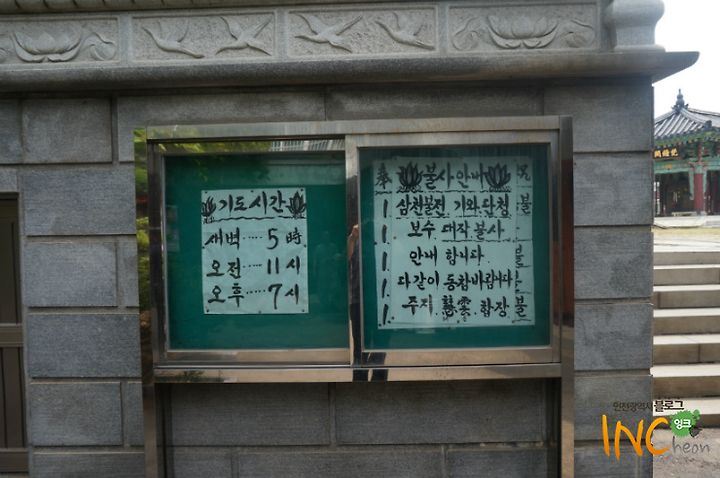 기도시간
새벽····5時
오전····11시
오후····7시
불사안내
삼천불전 기와 단청
보수 대작불사
안내 합니다
다같이 동참바랍니다
주지 慧雲 합장
인천광역시블로그
잉크
INCheon